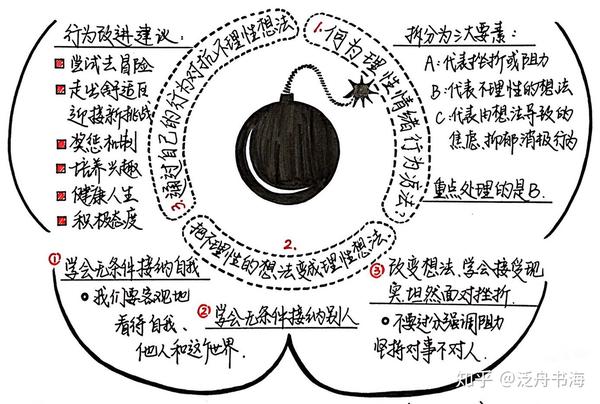 1. 何为理性情绪行为疗法?
拆分为三大要素:
A:代表挫折或阻力
B:代表不理性的想法
C:代表由想法导致的
焦虑.抑郁消极行为
重点处理的是B.
2.
把不理性的想法变成理性想法.
① 学会无条件接纳自我
我们要客观地
看待自我、
他人和这个世界.
② 学会无条件接纳别人
③ 改变想法、学会接受现
实,坦然面对挫折.
不要过分强调阻力
坚持对事不对人.
3. 通过自己的行为对抗不理性想法
行为改进建议:
尝试去冒险
走出舒适区
迎接新挑战
奖惩机制
培养兴趣
健康人生
积极态度
知乎 @泛舟书海